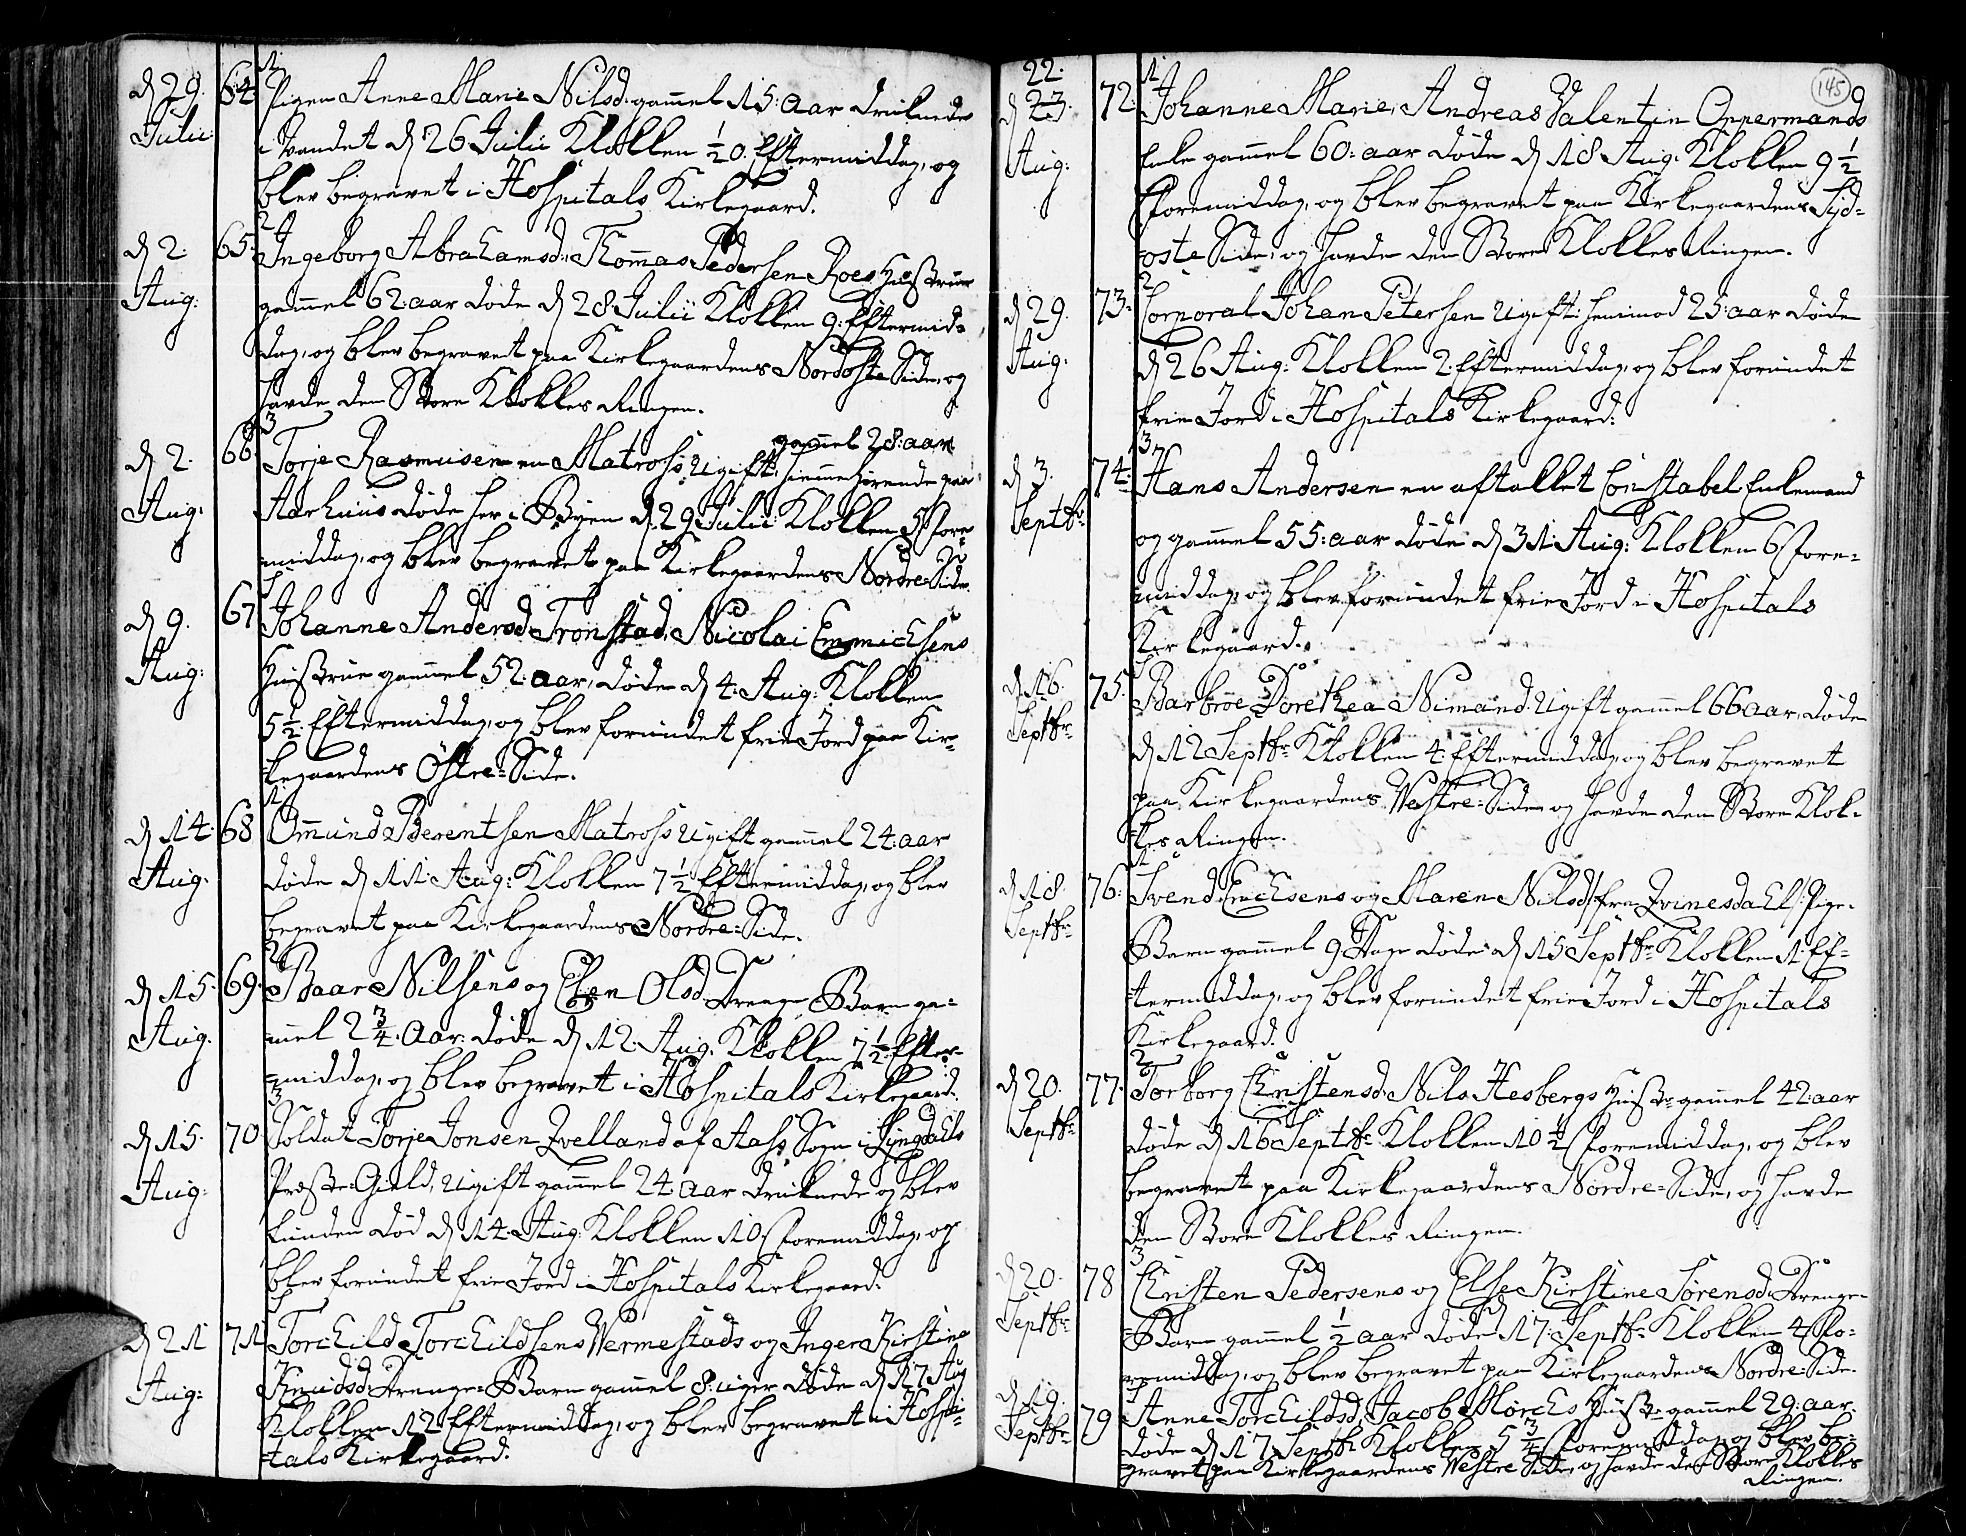 d 29. Julii 64. 1. Pigen Anne Marie Nilsd. gammel 15: aar druknede
i Vandet d 26 Julii Klokken ½0. Eftermiddag, og
blev begravet i Hospitals Kirkegaard.
d 2. Aug: 65. 2 Ingeborg Abrahamsd: Thomas Pedersen Roes Hustrue
gammel 62: aar døde d 28 Julii Klokken 9: Eftermid=
dag, og blev begravet paa Kirkegaardens Nordoste Side, og
havde den Store Klokkes Ringen.
d 2. Aug. 66. 3 Torje Rasmusen en Matross ugift, gammel 28: aar hiemmehørende paa
Aarhuus døde her i Byen d. 29 Julii Klokken 5 Fore=
middag, og blev begravet paa Kirkegaardens Nordre Side
d 9. Aug: 67 Johanne Andersd. Tronstad, Nicolai Emmichsens
Hustrue gammel 52: aar, døde d 4. Aug: Klokken
5½ Eftermiddag, og blev forundet frie Jord paa Kir=
kegaardens Östre=Side.
d 14. Aug. 68 1 Omund Berentsen Matross ugift gammel 24: aar
døde d 11: Aug: Klokken 7½ Eftermiddag, og blev
begravet paa Kirkegaardens Nordre=Side.
d 15. Aug. 69. 2 Baar Nilsens og Elen Olsd Drenge Barn ga=
mmel 2¾. aar døde d 12. Aug. Klokken 7½ Efter=
middag, og blev begravet i Hospitals Kirkegaard.
d 15. Aug: 70 3 Soldat Torje Jonsen Qvelland af Aass Sogn i Lyngdahls
Præste=Gield, ugift gammel 24: aar druknede og blev
funden død d 14. Aug: Klokken 10 Foremiddag, og
blev forundet frie Jord i Hospitals Kirkegaard.
d 21 Aug: 71 Torchild Torchildsens Wermestads og Inger Kirstine
Knudsd. Drenge=Barn gammel 8: uger døde d 17 Aug
Klokken 12 Eftermiddag, og blev begravet i Hospi=
tals Kirkegaard.
145
22. d 23. Aug: 72. 1 Johanne Marie, Andreas Valentin Oppermands
Enke gammel 60: aar døde d 18 Aug: Klokken 9½
Foremiddag, og blev begravet paa Kirkegaardens Syd=
oste Side, og havde den Store Klokkes Ringen.
d 29. Aug: 73. 2 Corporal Johan Petersen ugift: henimod 25: aar døde
d 26 Aug: Klokken 2: Eftermiddag, og blev forundet
frie Jord i Hospitals Kirkegaard.
d 3. Septbr 74. 3 Hans Andersen en aftakket Constabel Enkemand
og gammel 55: aar døde d 31. Aug: Klokken 6 Fore=
middag, og blev forundet frie Jord i Hospitals
Kirkegaard.
d 16. Septbr 75. Barbroe Dorethea Nimand ugift gammel 66 aar, døde
d 12 Septbr Klokken 4: Eftermiddag, og blev begravet
paa Kirkegaardens Westre=Side, og havde den Store Klok=
kes Ringen.
d 18. Septbr 76. 1 Svend Erichsens og Maren Nilsd /: fra Qvinesdahl :/ Pige=
Barn gammel 9 Dage døde d 15 Septbr Klokken 1. Ef=
termiddag, og blev forundet frie Jord i Hospitals
Kirkegaard.
d 20. Septbr 77. 2 Torborg Christensd. Nils Hesbergs Hustr. gammel 42: aar
døde d 16 Septbr. Klokken 10½ Foremiddag, og blev
begravet paa Kirkegaardens Nordre=Side, og havde
den Store Klokkes Ringen.
d 20. Septbr 78 3 Christen Pedersens og Else Kirstine Sørensd. Drenge=
Barn gammel ½ aar døde 17: Septbr Klokken 4 Fo=
remiddag, og blev begravet paa Kirkegaardens Nordre=Side.
d 19. Septbr. 79 Anne Torchildsd, Jacob Mørchs Hustr: gammel 29: aar.
døde d 17 Septbr Klokken 5¾ Foremiddag, og blev be=
gravet paa Kirkegaardens Westre Side, og havde den Store Klokkes
Ringen.